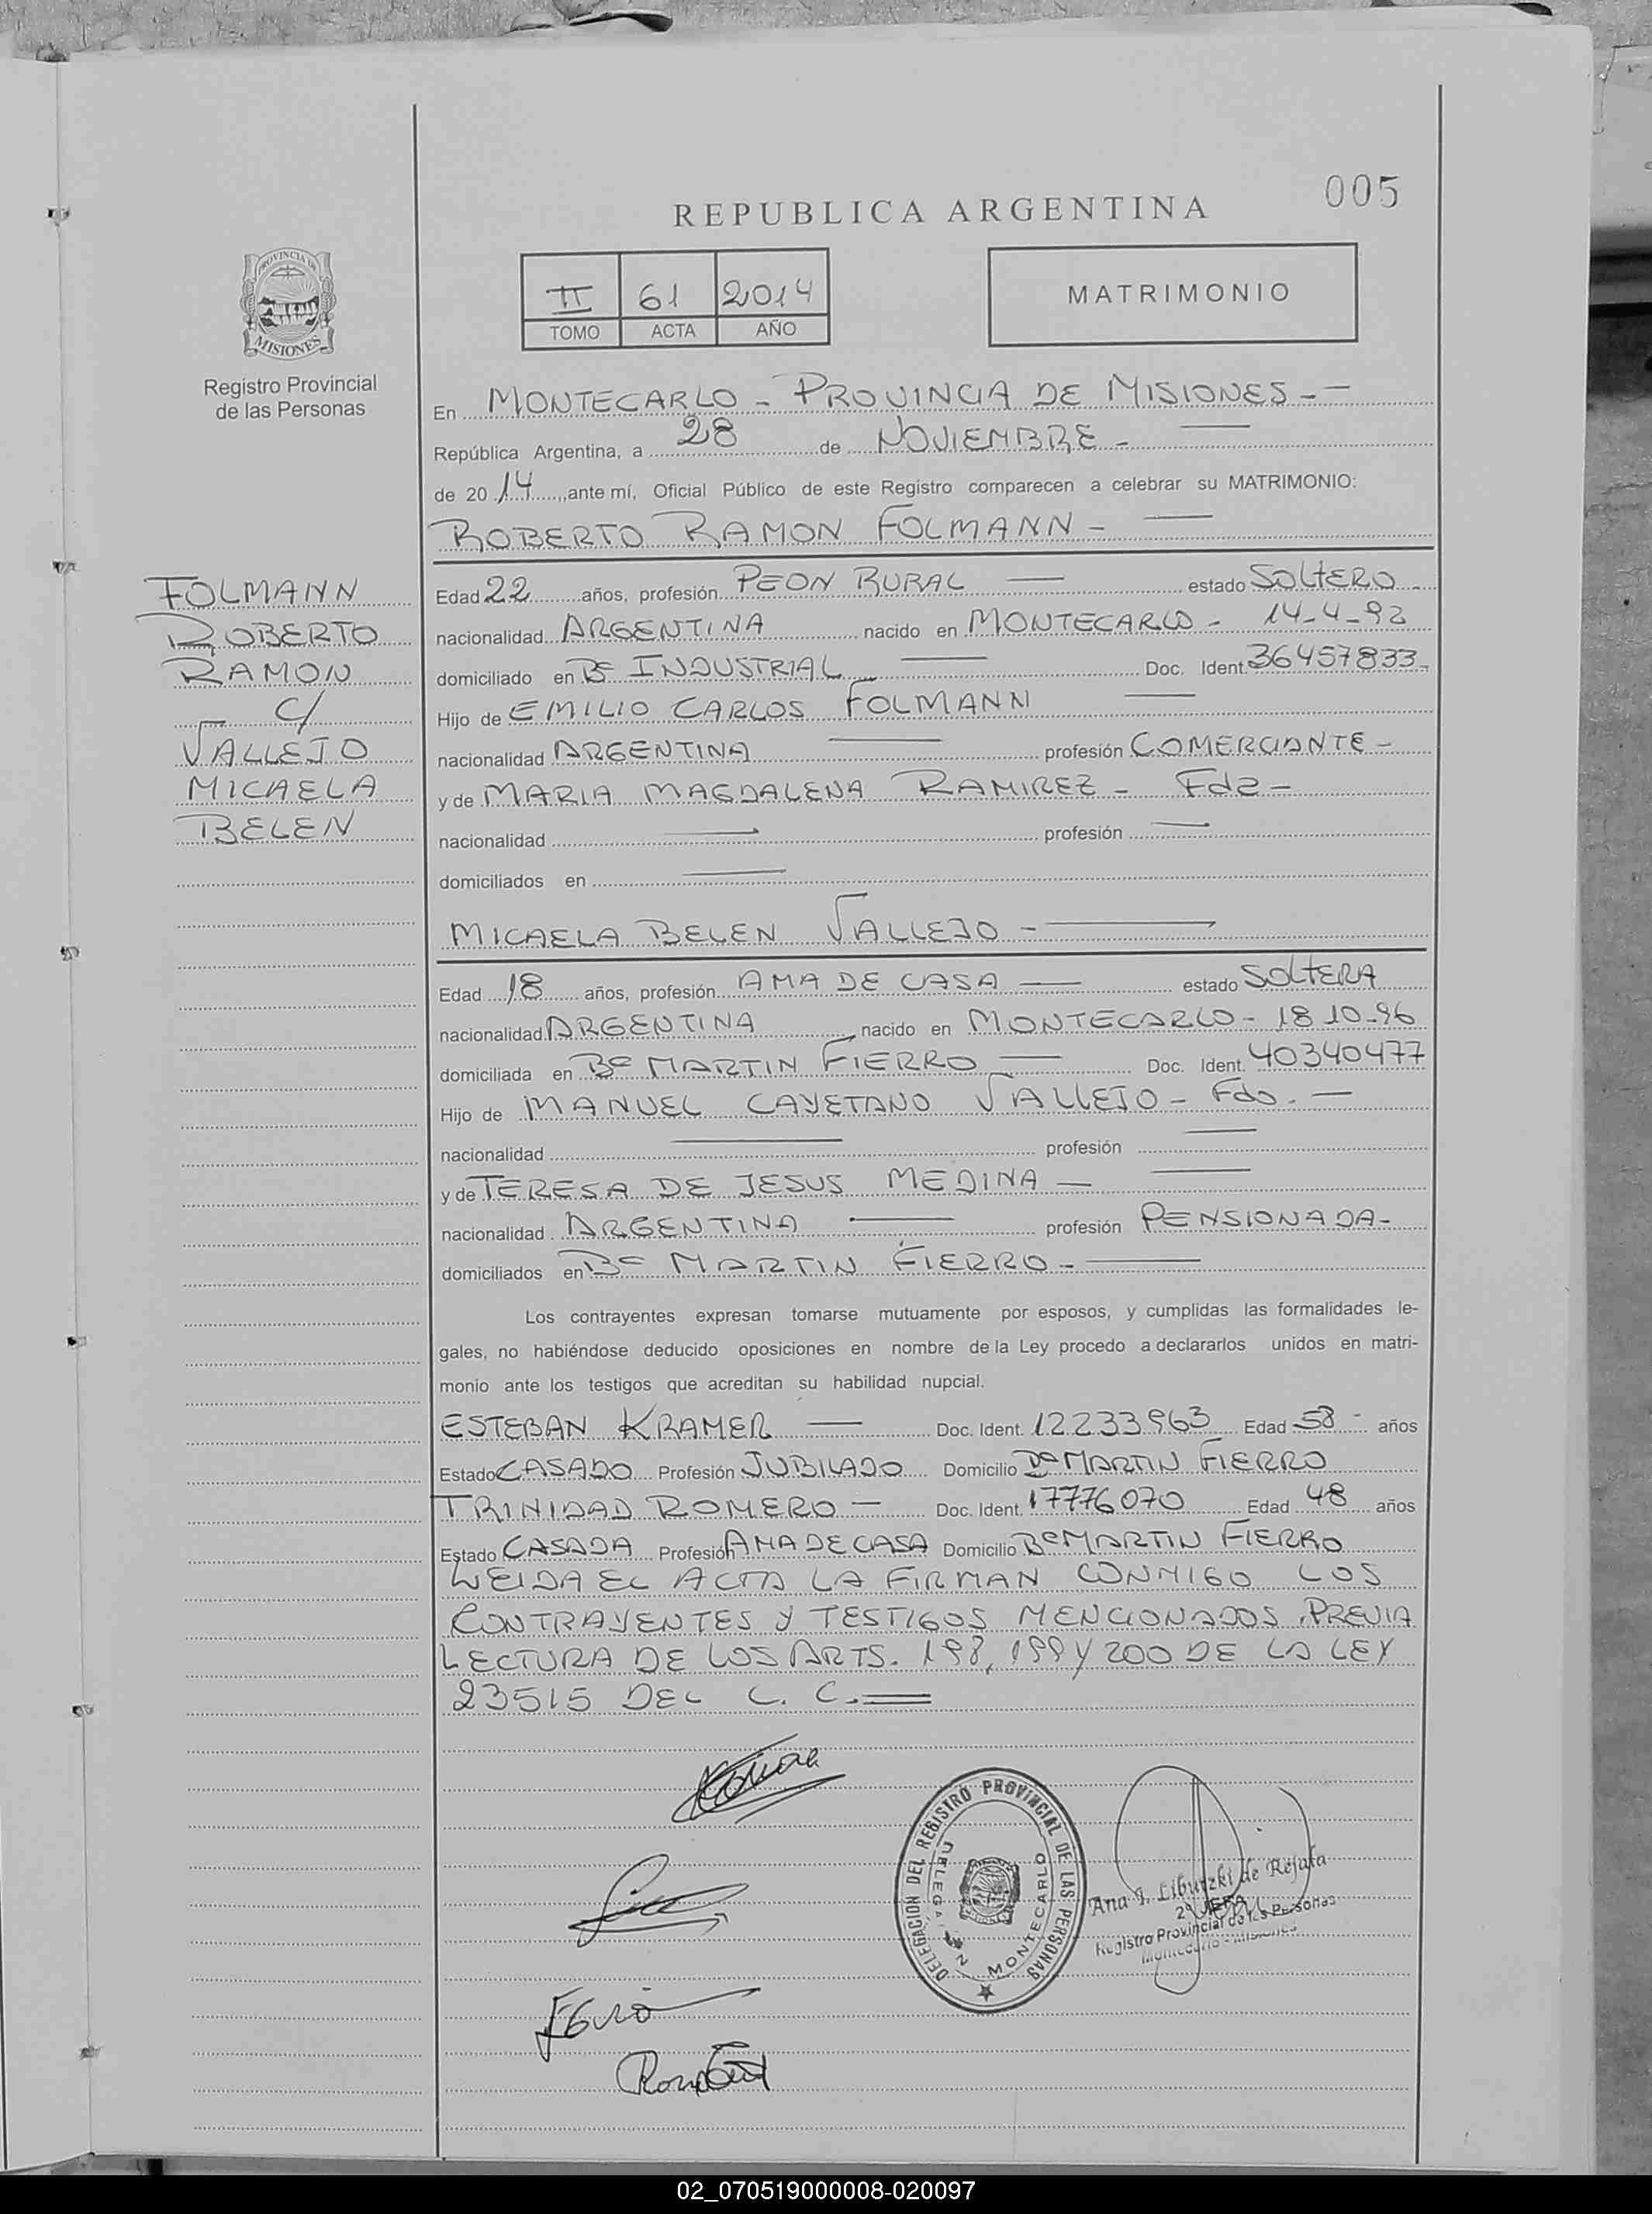 005
REPUBLICA ARGENTINA
PROVINCIA DE
MISIONES
Registro Provincial
de las Personas
II 61 2014
TOMO ACTA AÑO
MATRIMONIO
En MONTECARLO - PROVINCIA DE MISIONES -
República Argentina, a 28 de NOVIEMBRE -
de 2014, ante mí, Oficial Público de este Registro comparecen a celebrar su MATRIMONIO:
ROBERTO RAMON FOLMANN -
FOLMANN
ROBERTO
RAMON
C/
VALLEJO
MICAELA
BELEN
Edad 22 años, profesión PEON RURAL estado SOLTERO
nacionalidad ARGENTINA nacido en MONTECARLO - 14-4-92
domiciliado en Bº INDUSTRIAL Doc. Ident. 36457833-
Hijo de EMILIO CARLOS FOLMANN
nacionalidad ARGENTINA profesión COMERCIANTE -
y de MARIA MAGDALENA RAMIREZ - Fda -
nacionalidad profesión
domiciliados en
MICAELA BELEN VALLEJO -
Edad 18 años, profesión AMA DE CASA estado SOLTERA
nacionalidad ARGENTINA nacido en MONTECARLO - 18-10-96
domiciliada en Bº MARTIN FIERRO Doc. Ident. 40340477
Hijo de MANUEL CAYETANO VALLEJO - Fdo. -
nacionalidad profesión
y de TERESA DE JESUS MEDINA -
nacionalidad ARGENTINA profesión PENSIONADA-
domiciliados en Bº MARTIN FIERRO -
Los contrayentes expresan tomarse mutuamente por esposos, y cumplidas las formalidades le-
gales, no habiéndose deducido oposiciones en nombre de la Ley procedo a declararlos unidos en matri-
monio ante los testigos que acreditan su habilidad nupcial.
ESTEBAN KRAMER Doc. Ident. 12233963 Edad 58 - años
Estado CASADO Profesión JUBILADO Domicilio Bº MARTIN FIERRO
TRINIDAD ROMERO - Doc. Ident. 17776070 Edad 48 años
Estado CASADA Profesión AMA DE CASA Domicilio Bº MARTIN FIERRO
LEIDA EL ACTA LA FIRMAN CONMIGO LOS
CONTRAYENTES Y TESTIGOS MENCIONADOS, PREVIA
LECTURA DE LOS ARTS. 198, 199 Y 200 DE LA LEY
23515 DEL C. C.
DELEGACION DEL REGISTRO PROVINCIAL DE LAS PERSONAS
MONTECARLO
Ana I. Liburzki de Rejala
Registro Provincial de las Personas
Montecarlo - Misiones
02_070519000008-020097